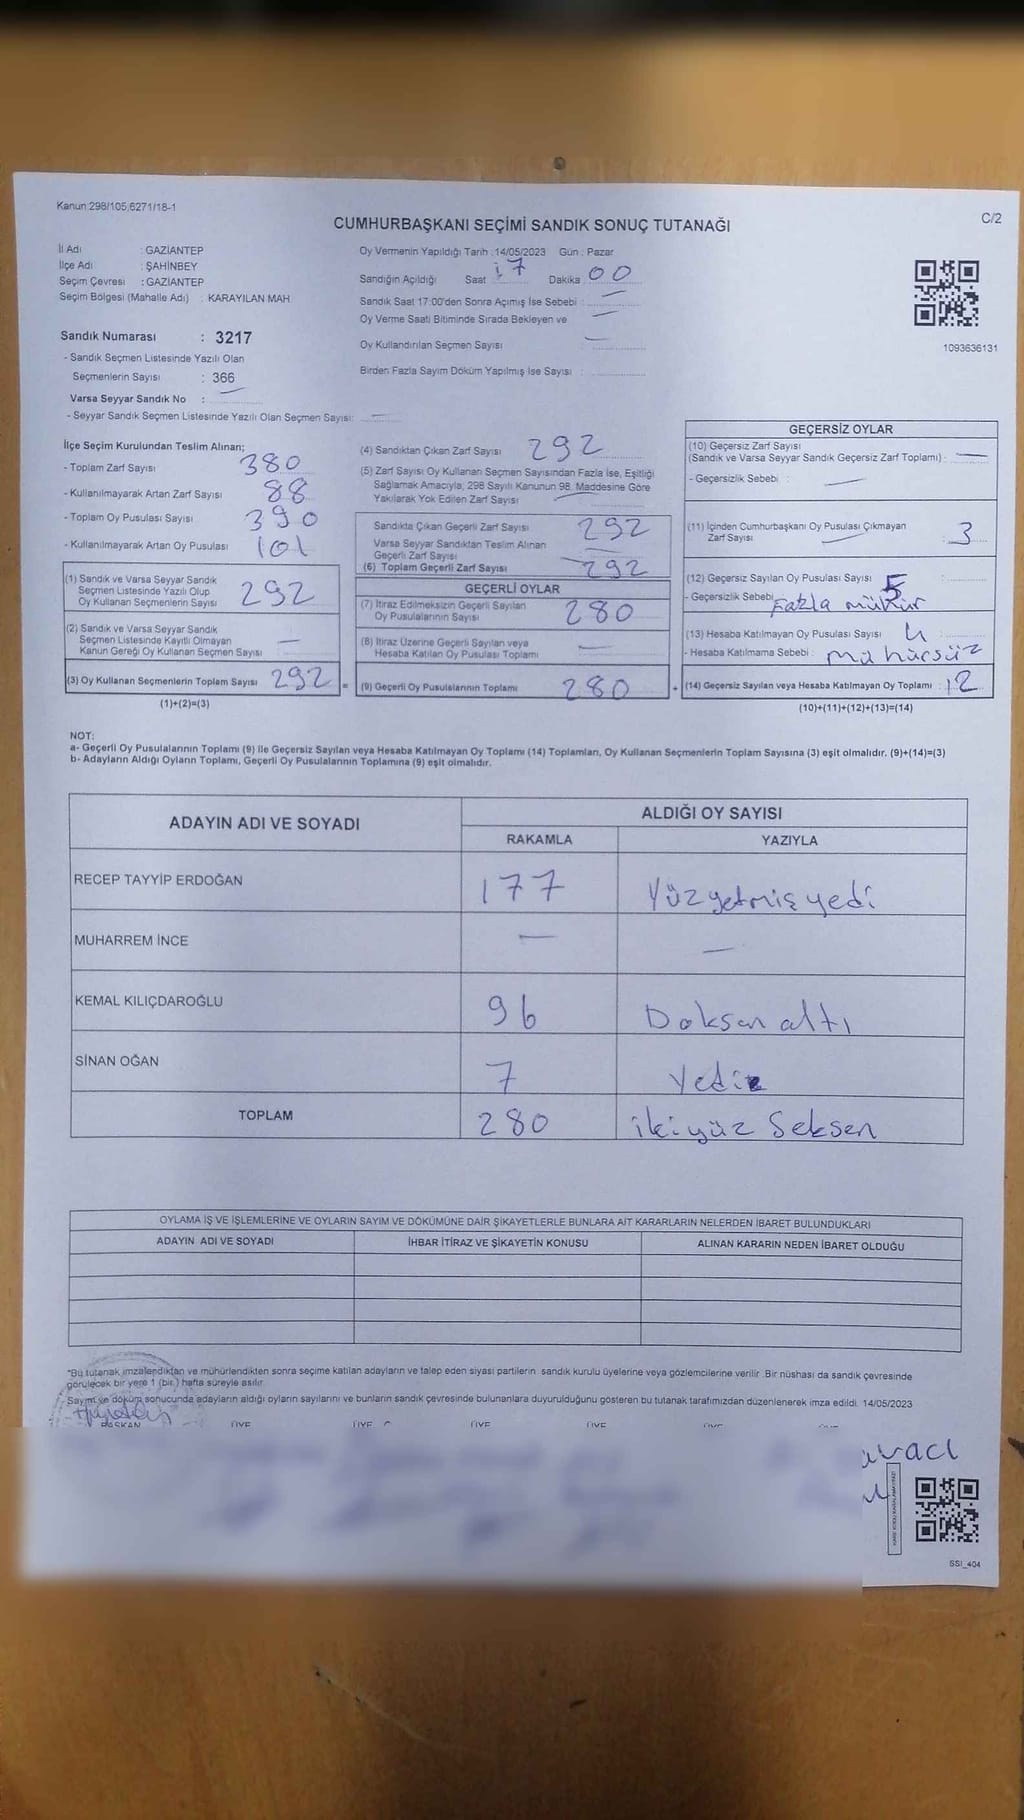 Kanun:298/105,6271/18-1
C/2
CUMHURBAŞKANI SEÇİMİ SANDIK SONUÇ TUTANAĞI
İl Adı : GAZİANTEP
İlçe Adı : ŞAHİNBEY
Seçim Çevresi : GAZİANTEP
Seçim Bölgesi (Mahalle Adı) : KARAYILAN MAH.
Sandık Numarası : 3217
- Sandık Seçmen Listesinde Yazılı Olan
Seçmenlerin Sayısı : 366
Varsa Seyyar Sandık No : —
- Seyyar Sandık Seçmen Listesinde Yazılı Olan Seçmen Sayısı: —
Oy Vermenin Yapıldığı Tarih : 14/05/2023 Gün : Pazar
Sandığın Açıldığı Saat 17 Dakika 00
Sandık Saat 17:00'den Sonra Açımış İse Sebebi : —
Oy Verme Saati Bitiminde Sırada Bekleyen ve —
Oy Kullandırılan Seçmen Sayısı : —
Birden Fazla Sayım Döküm Yapılmış İse Sayısı :
1093636131
İlçe Seçim Kurulundan Teslim Alınan;
- Toplam Zarf Sayısı 380
- Kullanılmayarak Artan Zarf Sayısı 88
- Toplam Oy Pusulası Sayısı 390
- Kullanılmayarak Artan Oy Pusulası 101
(1) Sandık ve Varsa Seyyar Sandık
Seçmen Listesinde Yazılı Olup
Oy Kullanan Seçmenlerin Sayısı 292
(2) Sandık ve Varsa Seyyar Sandık
Seçmen Listesinde Kayıtlı Olmayan
Kanun Gereği Oy Kullanan Seçmen Sayısı —
(3) Oy Kullanan Seçmenlerin Toplam Sayısı 292 =
(1)+(2)=(3)
(4) Sandıktan Çıkan Zarf Sayısı 292
(5) Zarf Sayısı Oy Kullanan Seçmen Sayısından Fazla İse, Eşitliği
Sağlamak Amacıyla, 298 Sayılı Kanunun 98. Maddesine Göre
Yakılarak Yok Edilen Zarf Sayısı —
Sandıkta Çıkan Geçerli Zarf Sayısı 292
Varsa Seyyar Sandıktan Teslim Alınan
Geçerli Zarf Sayısı —
(6) Toplam Geçerli Zarf Sayısı 292
GEÇERLİ OYLAR
(7) İtiraz Edilmeksizin Geçerli Sayılan
Oy Pusulalarının Sayısı 280
(8) İtiraz Üzerine Geçerli Sayılan veya
Hesaba Katılan Oy Pusulası Toplamı —
(9) Geçerli Oy Pusulalarının Toplamı 280 +
GEÇERSİZ OYLAR
(10) Geçersiz Zarf Sayısı
(Sandık ve Varsa Seyyar Sandık Geçersiz Zarf Toplamı) : —
- Geçersizlik Sebebi : —
(11) İçinden Cumhurbaşkanı Oy Pusulası Çıkmayan
Zarf Sayısı — 3
(12) Geçersiz Sayılan Oy Pusulası Sayısı 5
- Geçersizlik Sebebi Fazla mühür
(13) Hesaba Katılmayan Oy Pusulası Sayısı 4
- Hesaba Katılmama Sebebi : mühürsüz
(14) Geçersiz Sayılan veya Hesaba Katılmayan Oy Toplamı : 12
(10)+(11)+(12)+(13)=(14)
NOT:
a- Geçerli Oy Pusulalarının Toplamı (9) ile Geçersiz Sayılan veya Hesaba Katılmayan Oy Toplamı (14) Toplamları, Oy Kullanan Seçmenlerin Toplam Sayısına (3) eşit olmalıdır. (9)+(14)=(3)
b- Adayların Aldığı Oyların Toplamı, Geçerli Oy Pusulalarının Toplamına (9) eşit olmalıdır.
ADAYIN ADI VE SOYADI ALDIĞI OY SAYISI
RAKAMLA YAZIYLA
RECEP TAYYİP ERDOĞAN 177 Yüzyetmişyedi
MUHARREM İNCE — —
KEMAL KILIÇDAROĞLU 96 Doksan altı
SİNAN OĞAN 7 Yedi
TOPLAM 280 ikiyüz Seksen
OYLAMA İŞ VE İŞLEMLERİNE VE OYLARIN SAYIM VE DÖKÜMÜNE DAİR ŞİKAYETLERLE BUNLARA AİT KARARLARIN NELERDEN İBARET BULUNDUKLARI
ADAYIN ADI VE SOYADI İHBAR İTİRAZ VE ŞİKAYETİN KONUSU ALINAN KARARIN NEDEN İBARET OLDUĞU
*Bu tutanak imzalandıktan ve mühürlendikten sonra seçime katılan adayların ve talep eden siyasi partilerin sandık kurulu üyelerine veya gözlemcilerine verilir. Bir nüshası da sandık çevresinde
görülecek bir yere 1 (bir ) hafta süreyle asılır.
Sayım ve döküm sonucunda adayların aldığı oyların sayılarını ve bunların sandık çevresinde bulunanlara duyurulduğunu gösteren bu tutanak tarafımızdan düzenlenerek imza edildi. 14/05/2023
BAŞKAN ÜYE ÜYE ÜYE ÜYE
SSI_404